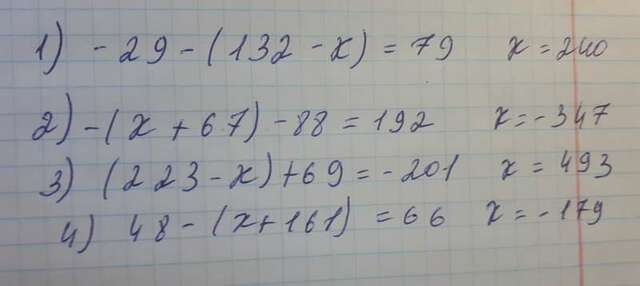 1) - 29 - (132 - x) = 79 x = 240
2) - (x + 67) - 88 = 192 x = - 347
3) (223 - x) + 69 = - 201 x = 493
4) 48 - (x + 161) = 66 x = - 179